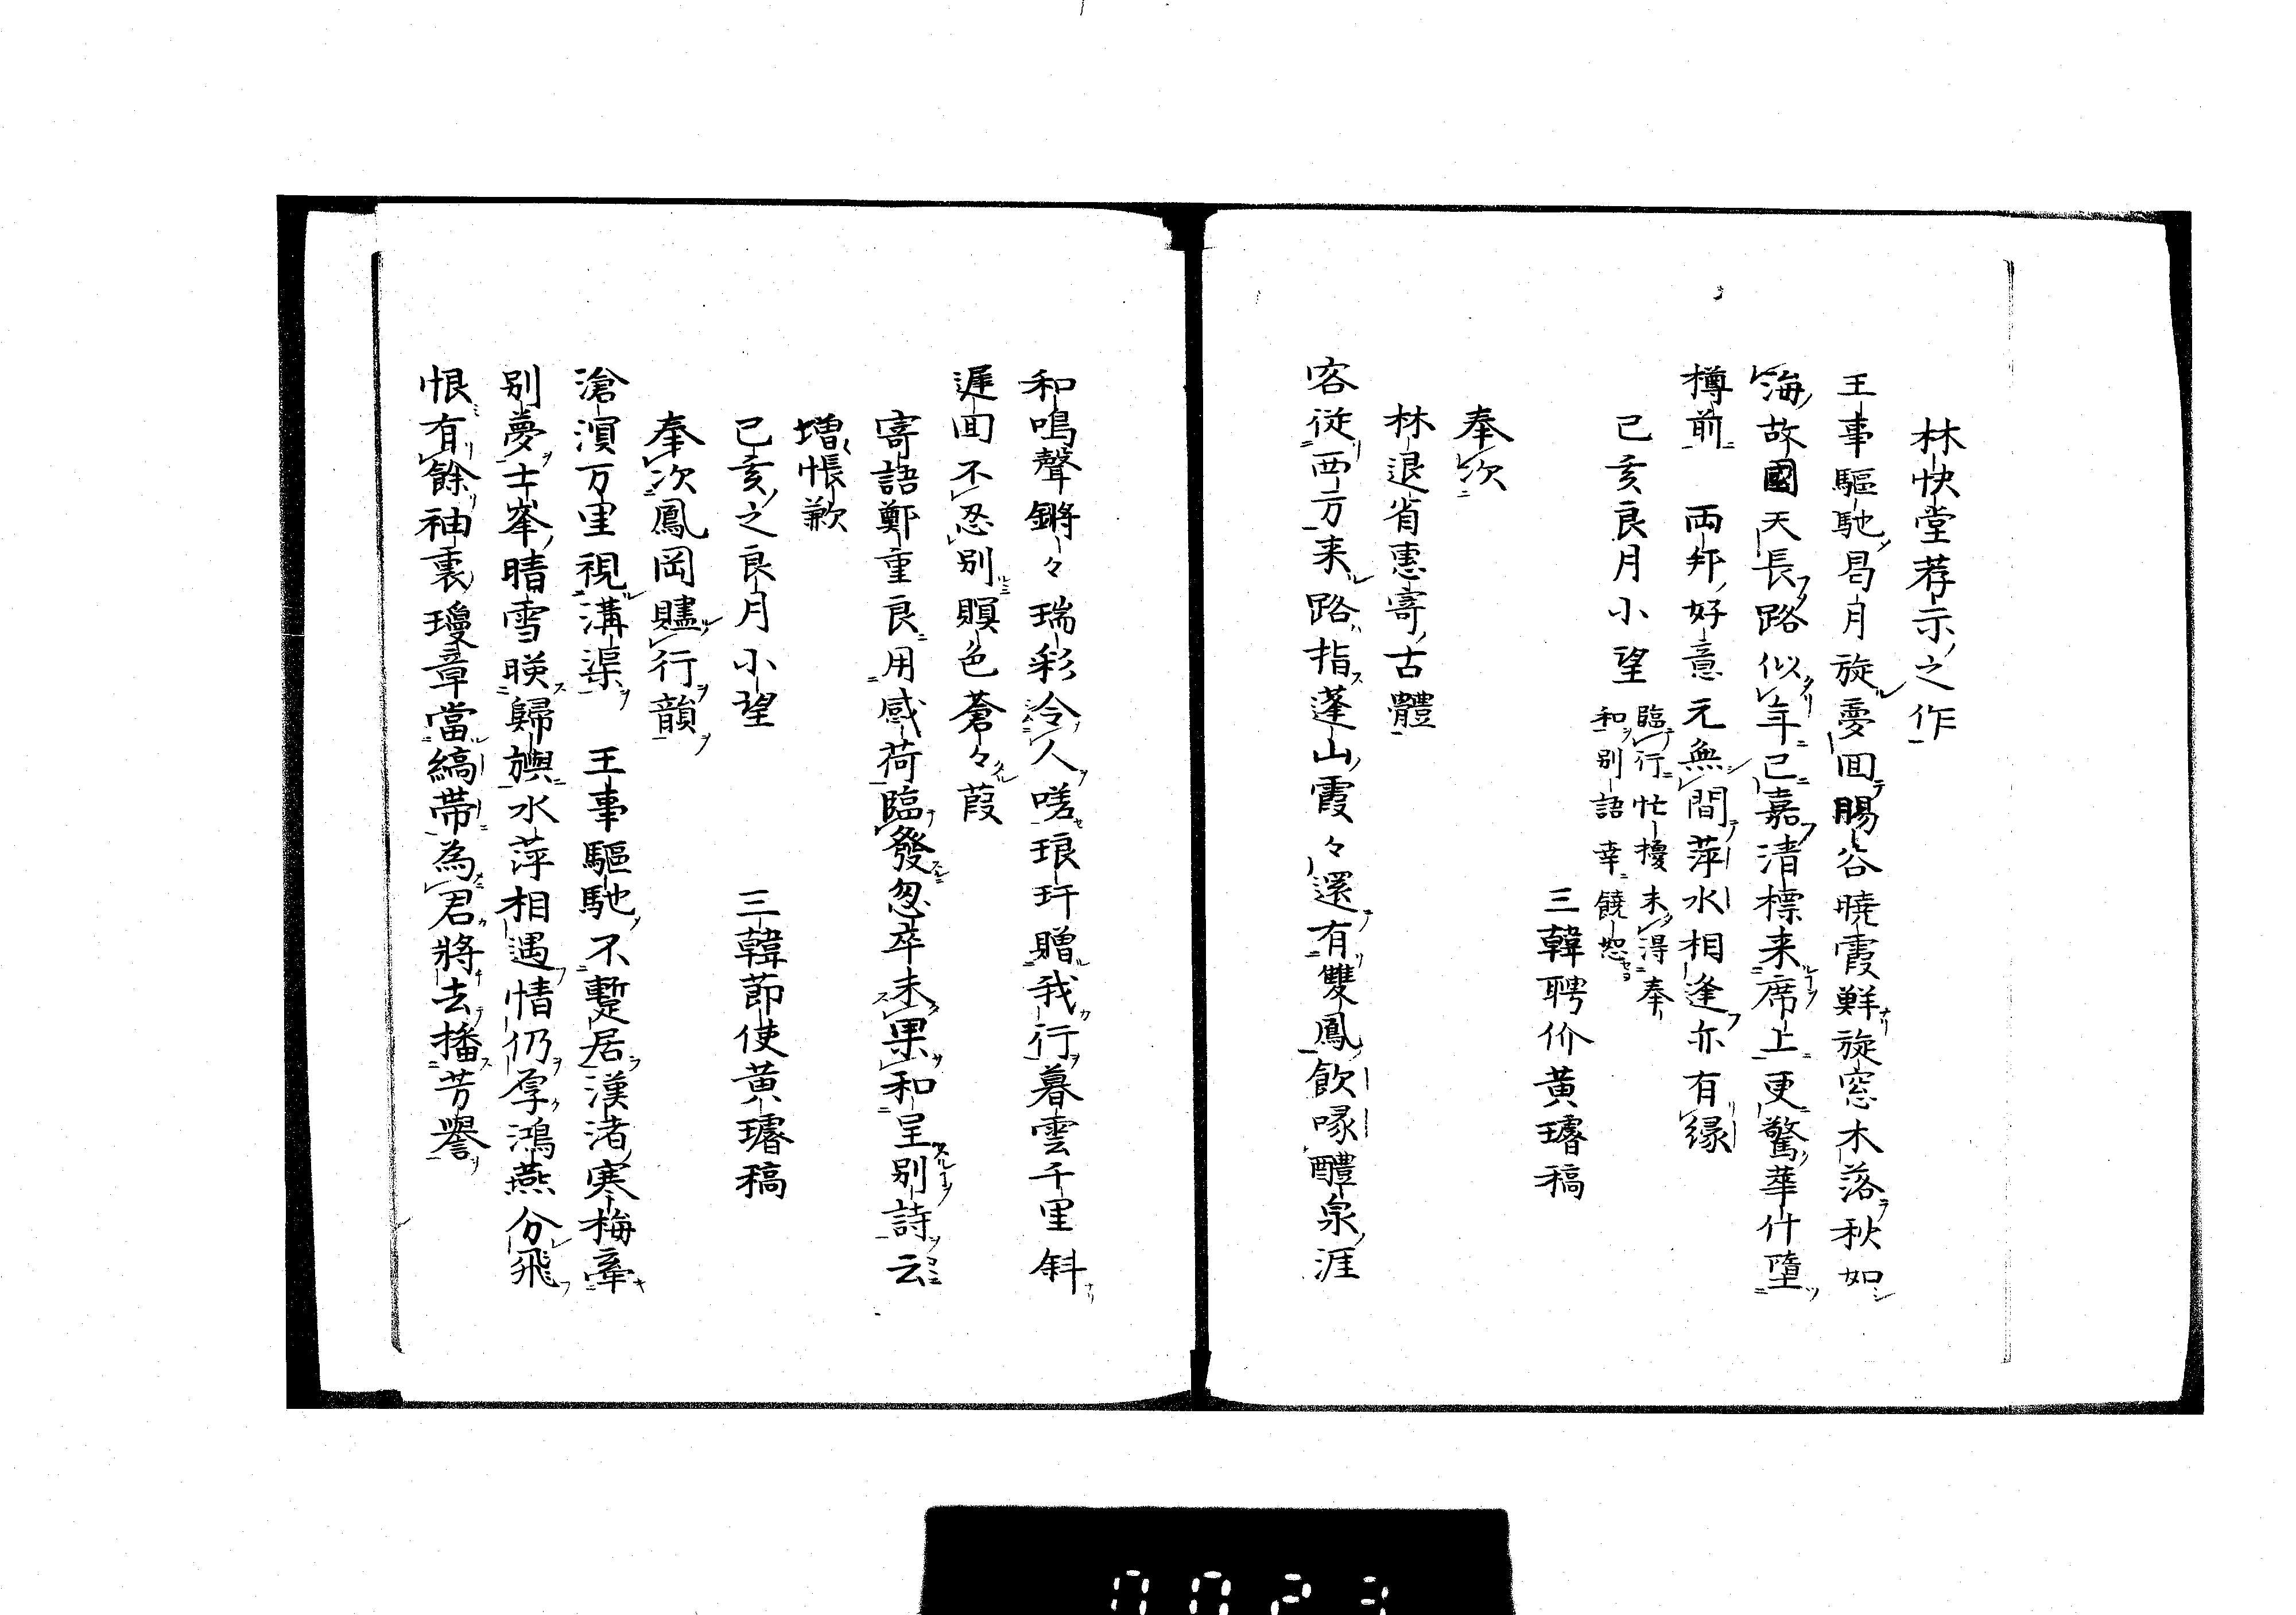 林快堂荐示之作
王事驅馳曷月旋夢回暘谷曉霞鮮旋窓木落秋如
海故國天長路似年已嘉清標来席上更驚華什墮
樽前　両邦好意元無間萍水相逢亦有縁
己亥良月小望
臨行忙擾未得奉
和別語幸饒恕
三韓聘价黄璿稿
奉次
林退省惠寄古體
客従西方来路指蓬山霞々還有雙鳳飲啄醴泉涯
和鳴聲鏘々瑞彩令人嗟琅玕贈我行暮雲千里斜
遲回不忍別暝色蒼々葭
寄語鄭重良用感荷臨發忽卒未果和呈別詩云
増悵歉
己亥之良月小望
三韓節使黄璿稿
奉次鳳岡贐行韻
滄溟万里視溝渠　王事驅馳不蹔居漢渚寒梅牽
別夢士峯晴雪暎歸旟水萍相遇情仍厚鴻燕分飛
恨有餘袖裏瓊章當縞帯為君將去播芳譽
0023